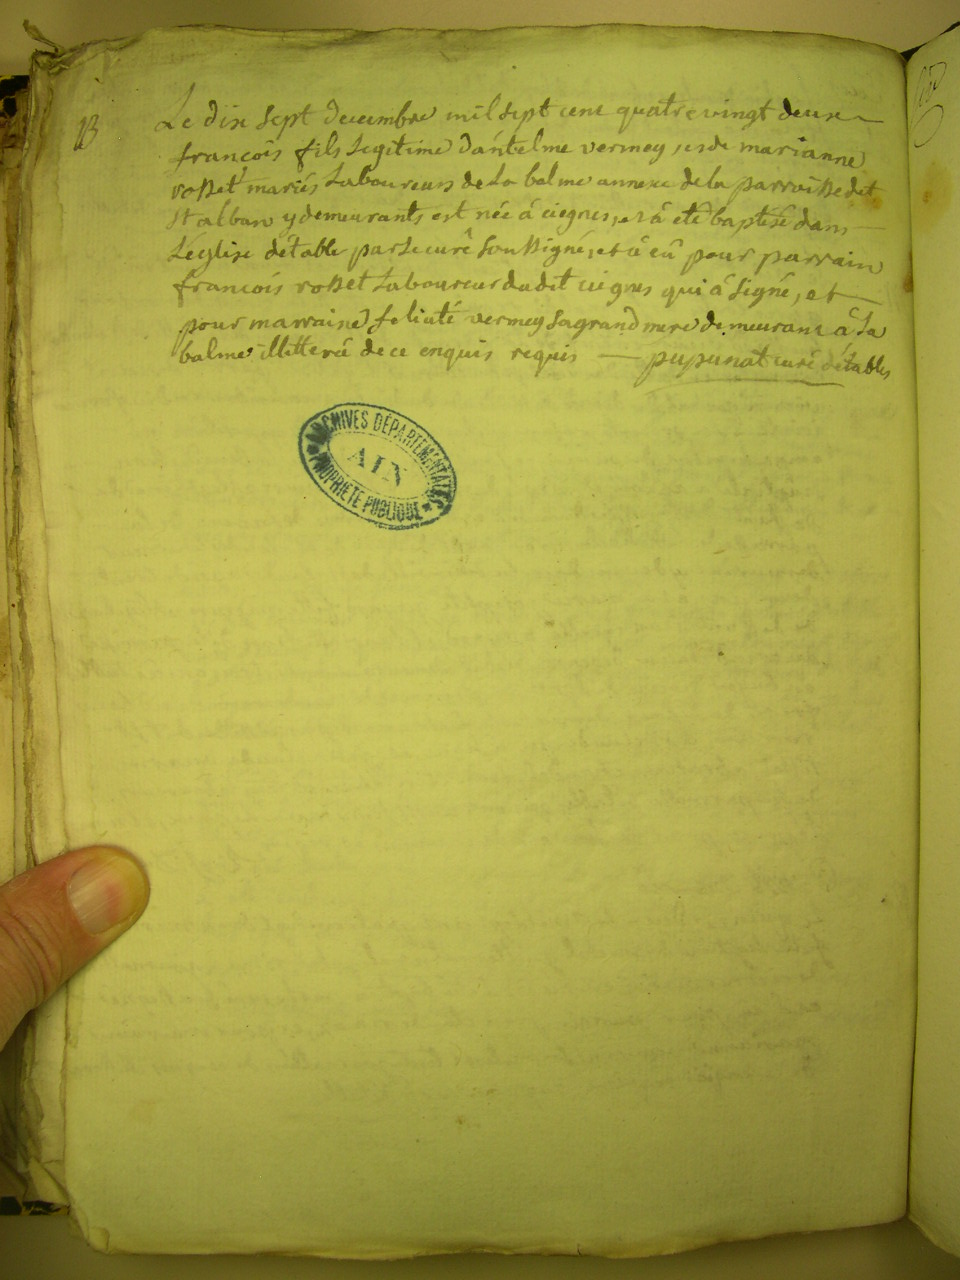 13
Le dix sept decembre mil sept cent quatre vingt deux
francois fils legitime d'antelme vermey, et de marianne
rosset mariés Laboureurs de La balme annexe de la parroisse de
st alban y demeurants est née à ciegnes, et a eté baptisé dans
L'église détable par Le curé soussigné, et a eû pour parrain
francois rosset Laboureur dudit ciégnes qui â signé, et
pour marraine felicité vermey sa grand mere demeurant â La
balme illitterâ de ce enquis requis pupunat curé détables
ARCHIVES DÉPARTEMENTALES
AIN
PROPRIÉTÉ PUBLIQUE